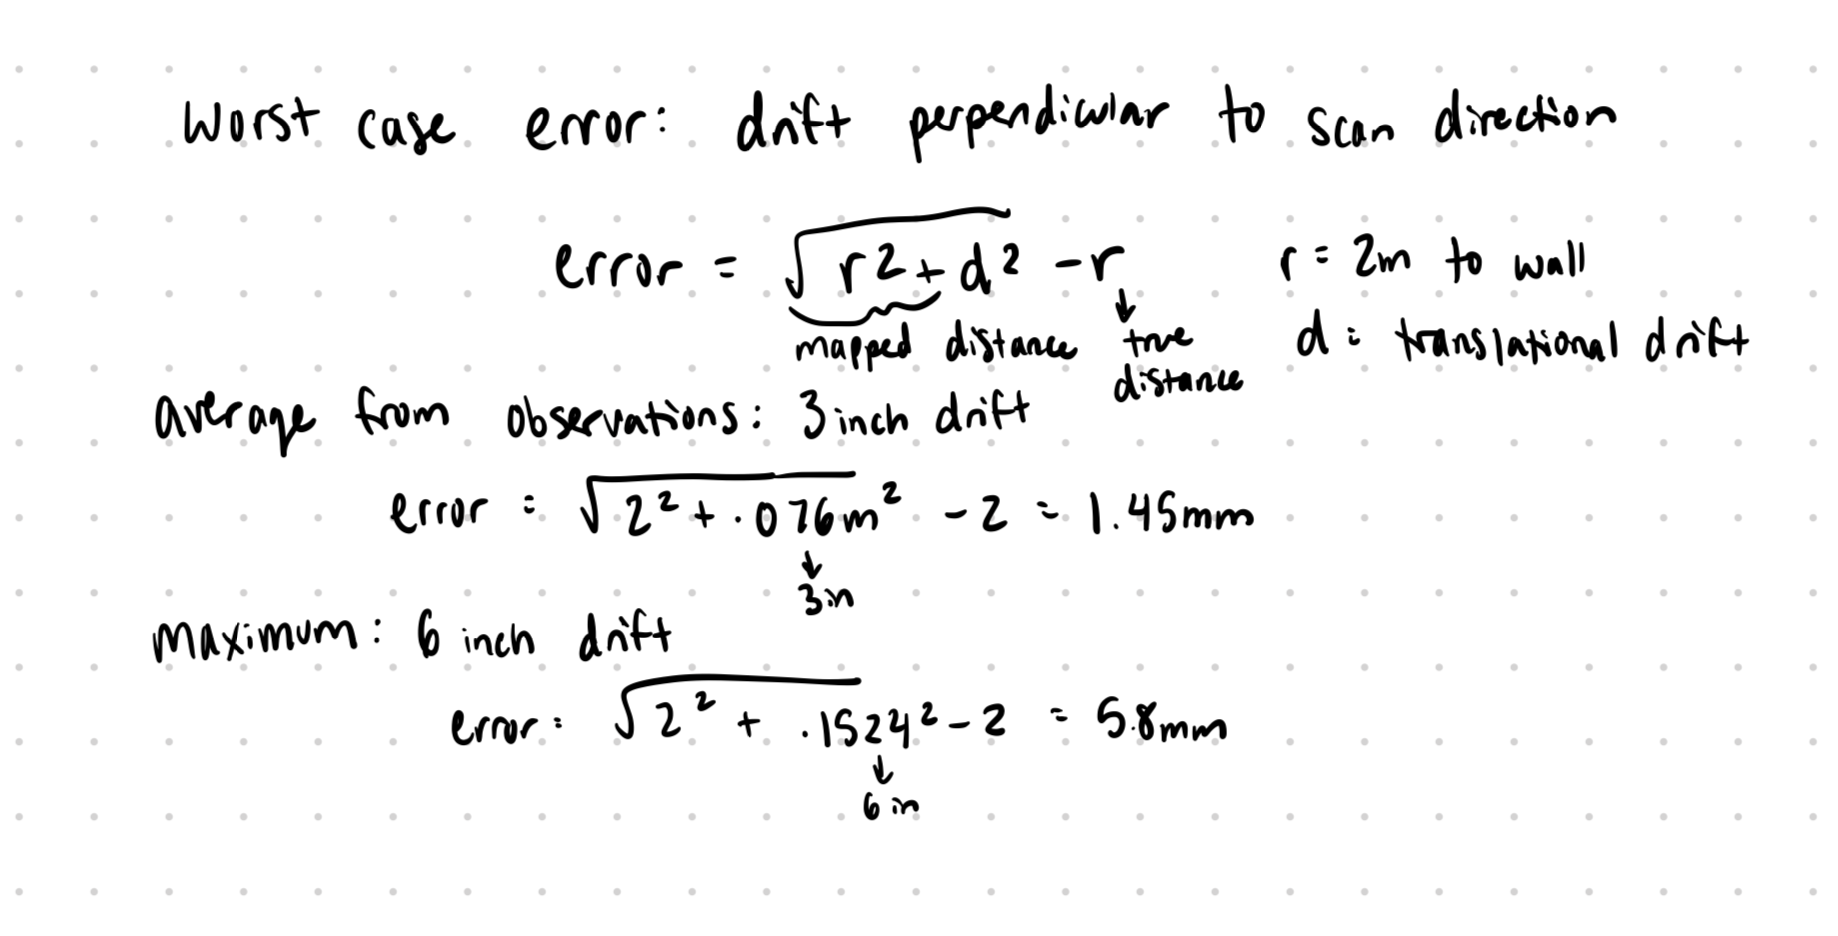 Worst case error: drift perpendicular to scan direction
error = √(r² + d²) - r    r = 2m to wall
mapped distance    true distance    d: translational drift
average from observations: 3 inch drift
error = √(2² + .076m²) - 2 = 1.45mm
3in
maximum: 6 inch drift
error = √(2² + .1524²) - 2 = 5.8mm
6 in